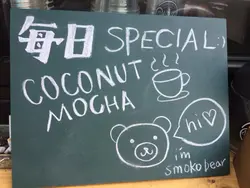 毎日 SPECIAL:)
COCONUT
MOCHA
hi♡
i'm
smoko bear